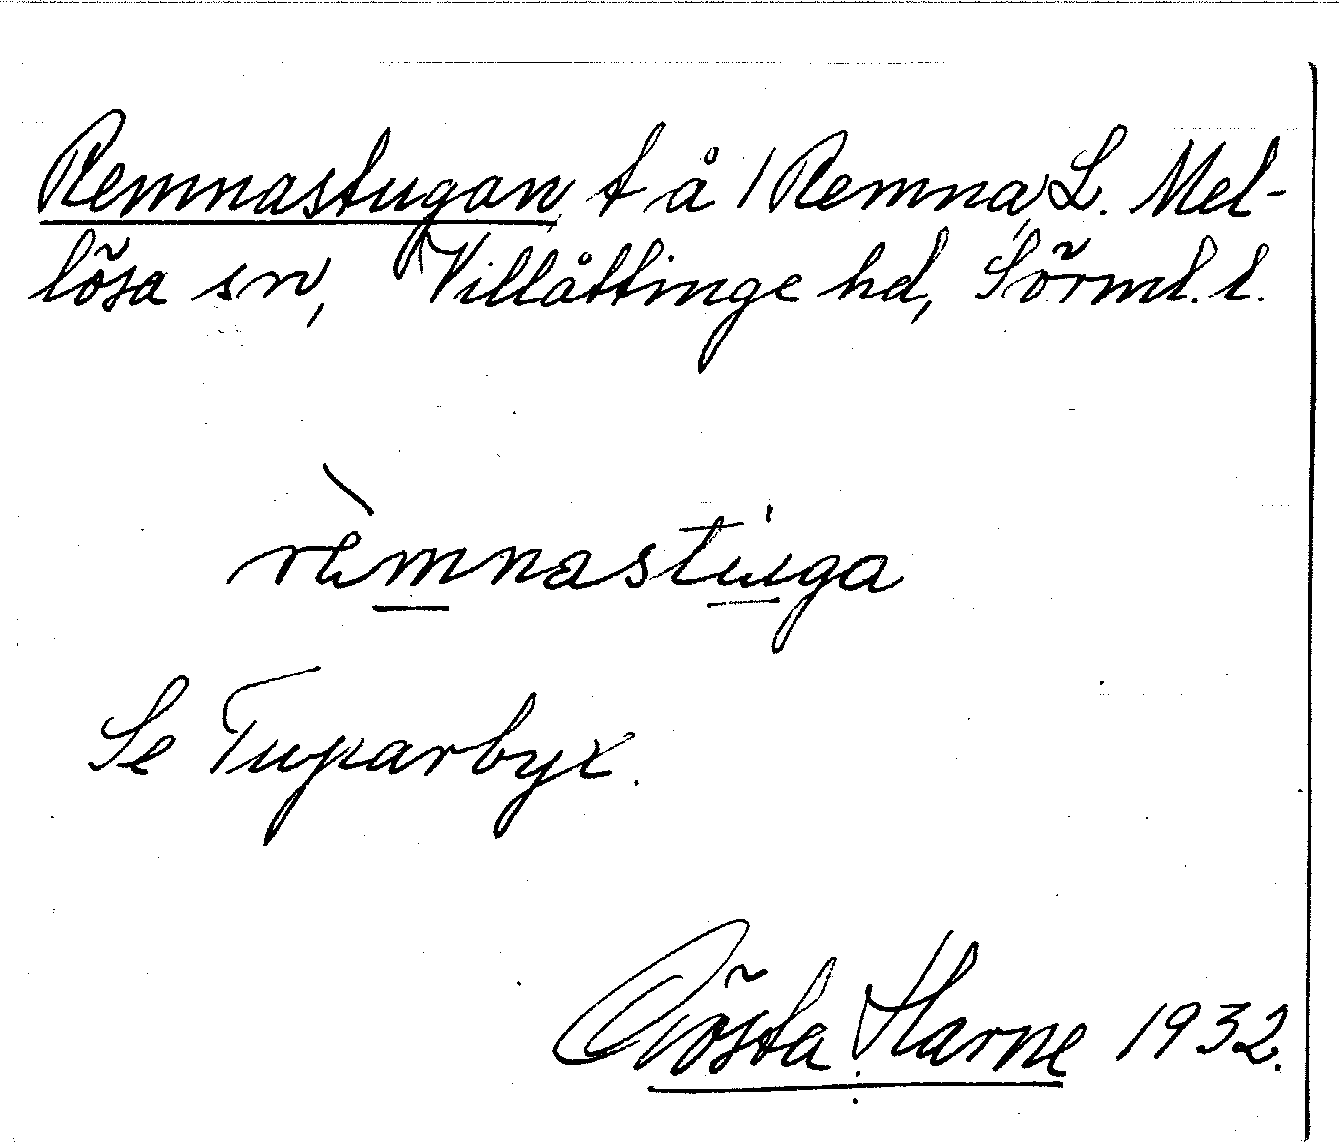 Remnastugan, t å 1 Remna, L. Mel-
lösa sn, Villåttinge hd, Sörml. l.
rèmnastuga
Se Tuparbyx.
Gösta Harne 1932.